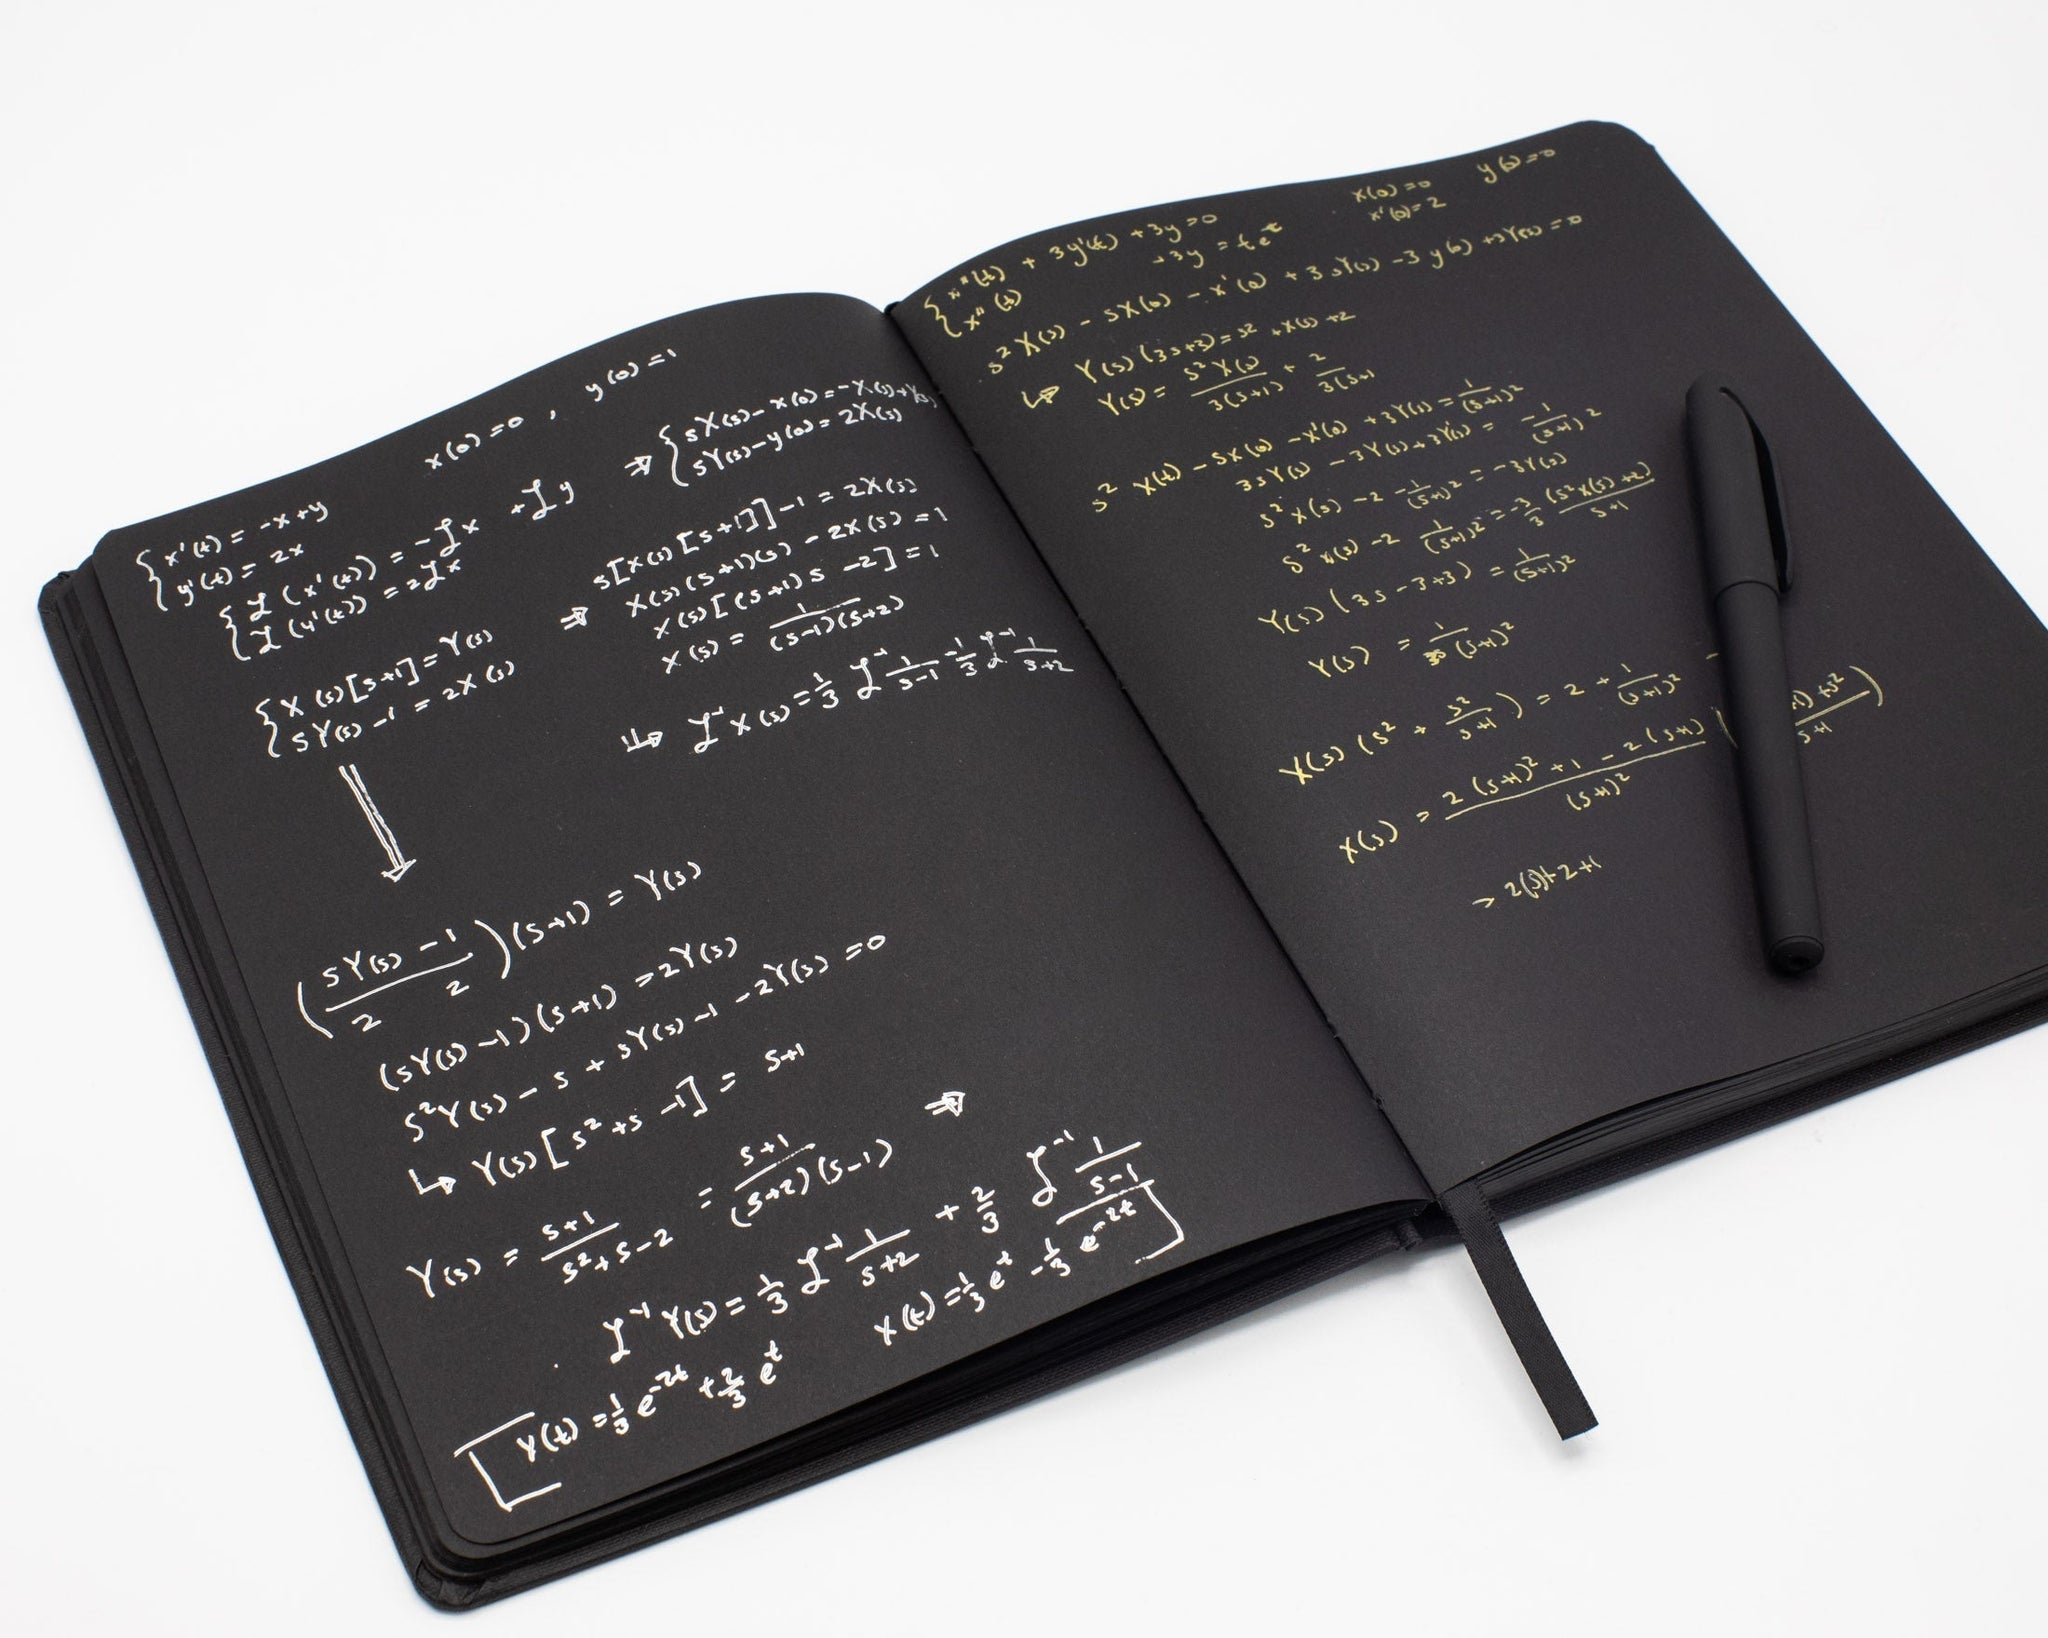 x(0)=0 , y(0)=1
{ x'(t) = -x+y
y'(t) = 2x
{ ℒ(x'(t)) = -ℒx +ℒy
ℒ(y'(t)) = 2ℒx
⇒ { sX(s)-x(0)=-X(s)+Y(s)
sY(s)-y(0)=2X(s)
{ X(s)[s+1]=Y(s)
sY(s)-1=2X(s)
⇒ s[X(s)[s+1]]-1=2X(s)
X(s)(s+1)(s)-2X(s)=1
X(s)[(s+1)s-2]=1
X(s) = 1/((s-1)(s+2))
↳ ℒ⁻¹X(s)=1/3 ℒ⁻¹ 1/(s-1) -1/3 ℒ⁻¹ 1/(s+2)
((sY(s)-1)/2)(s+1)=Y(s)
2
(sY(s)-1)(s+1)=2Y(s)
s²Y(s)-s+sY(s)-1-2Y(s)=0
↳ Y(s)[s²+s-1]= s+1
Y(s) = (s+1)/(s²+s-2) = (s+1)/((s+2)(s-1)) ⇒
ℒ⁻¹Y(s)=1/3 ℒ⁻¹ 1/(s+2) + 2/3 ℒ⁻¹ 1/(s-1)
y(t)=1/3 e^(-2t) + 2/3 e^t
x(t)=1/3 e^t - 1/3 e^(-2t)
x(0)=0 y(0)=0
x'(0)=2
{ x''(t) + 3y'(t) +3y=0
x''(t) +3y = te^-t
s²X(s) - sX(0) - x'(0) +3sY(s)-3y(0)+3Y(s)=0
↳ Y(s)(3s+3)=s²+X(s)+2
Y(s) = s²X(s)/(3(s+1)) + 2/(3(s+1
s²X(t)-sX(0)-x'(0)+3Y(s)=1/(s+1)²
3sY(s)-3Y(s)+3Y(s) = -1/(s+1)²
s²X(s)-2-1/(s+1)²=-3Y(s)
s²X(s)-2 1/(s+1)²=-3/3 (s²X(s)+2)/(s+1)
Y(s)(3s-3+3) = 1/(s+1)²
Y(s) = 1/(3s(s+1)²)
X(s)(s²+s²/(s+1))=2+1/(s+1)² -
X(s) = (2(s+1)²+1-2(s+1))/(s+1)² ( 1)+s²/(s+1))
→ 2(s)+2+1